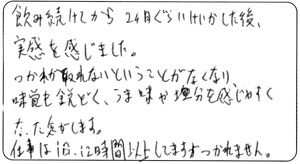 飲み続けてから 24日ぐらいけいかした後、
実感を感じました。
つかれが取れないということがなくなり、
味覚も鋭どく、うま味や塩分を感じやすく
なった気がします。
仕事は 12時間以上してますがつかれません。